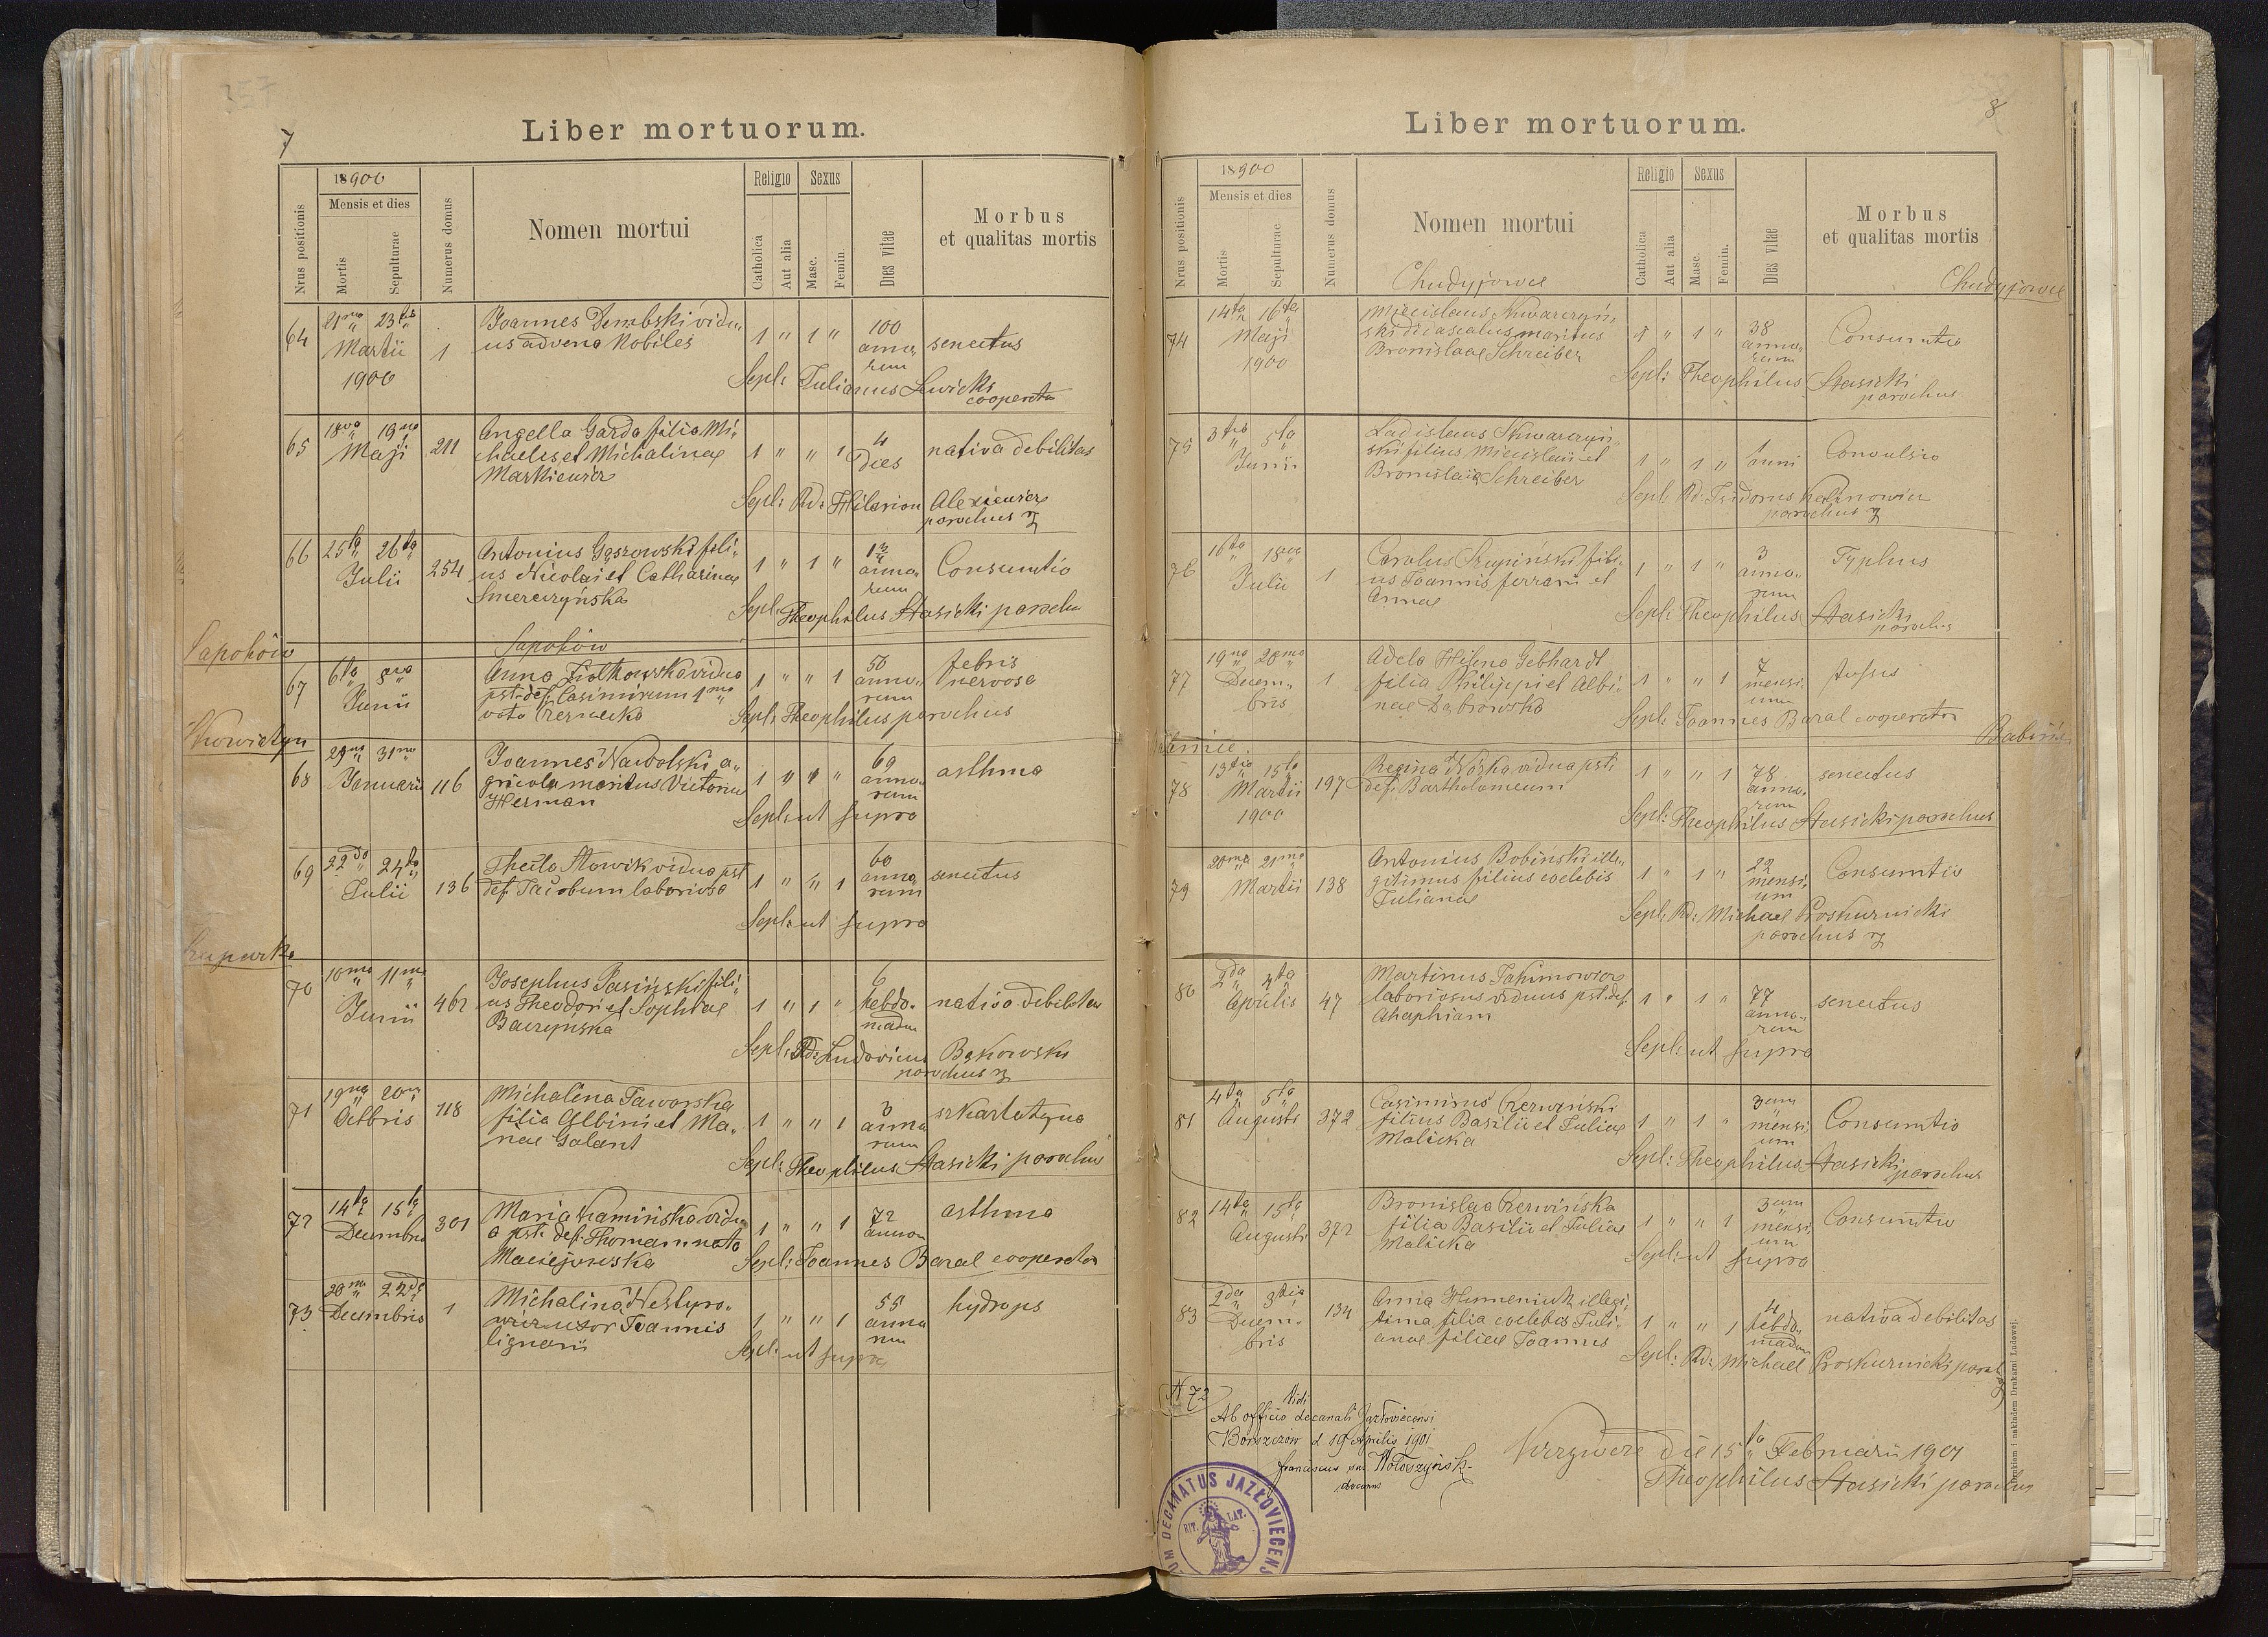 7
Liber mortuorum.
Nrus positionis
18900
Mensis et dies
Mortis
Sepulturae
Numerus domus
Nomen mortui
Religio
Catholica
Aut alia
Sexus
Masc.
Femin.
Dies vitae
Morbus
et qualitas mortis
64
21ma 23tia
Martii
1900
1
Joannes Dembski vidu„
us advena Nobiles
1 „ 1 „
100
anno„
rum
senectus
Sepl: Julianus Lwicki
cooperator
65
18va 19na
Maji
211
Angella Garda filia Mi„
chaelis et Michalinae
Markiewicz
1 „ „ 1
4
Dies
nativa debilitas
Sepl: Rd: Hilarion Alexiewicz
parochus
66
25ta 26ta
Julii
254
Antonius Gąszowski fili„
us Nicolai et Catharinae
Smereczyńska
1 „ 1 „
anno„
rum
Consumtio
Sepl: Theophilus Stasicki parochu
Sapohów
Sapohów
67
6ta 8va
Junii
Anna Ziółkowska vidua
pst. def. Casimirum 1mo
voto Czernecka
1 „ „ 1
50
anno„
rum
febris
nervosa
Sepl: Theophilus parochus
68
29na 31ma
Januarii
116
Joannes Nawolski a„
gricola maritus Victoriae
Herman
69
anno„
rum
asthma
Sepl: ut supra
69
22da 24ta
Julii
136
Thecla Słowik vidua pst
def. Jacobum laboriosa
1 „ „ 1
60
anno
rum
senectus
Sepl: ut supra
70
10ma 11ma
Junii
462
Josephus Jasiński fili„
us Theodori et Sophiae
Baczyńska
1 „ 1 „
6
hebdo„
madum
nativa debilitas
Sepl: Rd: Ludovicus Bąkowski
parochus
71
19na 20ma
Octbris
118
Michalina Jaworska
filia Albini et Ma„
riae Galant
1 „ „ 1
3
anno
rum
szkarlatyna
Sepl: Theophilus Stasicki parochus
72
14ta 15ta
Decembris
301
Maria Kamińska vidu„
a pst. def. Thomam nata
Maciejowska
1 „ „ 1
72
annor
asthma
Sepl: Joannes Baral cooperator
73
20ma 22da
Decembris
1
uxor Joannis
lignarii
1 „ „ 1
55
anno
rum
hydrops
Sepl: ut supra
8
Liber mortuorum.
Nrus positionis
18900
Mensis et dies
Mortis
Sepulturae
Numerus domus
Nomen mortui
Chudyjowce
Religio
Catholica
Aut alia
Sexus
Masc.
Femin.
Dies vitae
Morbus
et qualitas mortis
Chudyjowce
74
14ta 16ta
Maji
1900
Miecislaus Skwarczyń„
ski maritus
Bronislaae Schreiber
1 „ 1 „
38
anno„
rum
Consumtio
Sepl: Theophilus Stasicki
parochus
75
3tia 5ta
Junii
Ladislaus Skwarczyń„
ski filius Miecislai et
Bronislaae Schreiber
1 „ 1 „
1
anni
Convulsio
Sepl: Rd: Isidorus Kalinowicz
parochus
76
16ta 18va
Julii
1
Carolus Szupiński fili„
us Joannis ferrarii et
Annae
1 „ 1 „
3
anno„
rum
Typhus
Sepl: Theophilus Stasicki
parochus
77
19na 20ma
Decem„
bris
1
Adela Helena Gebhardt
filia Philippi et Albi„
nae Dąbrowska
1 „ „ 1
7
mensi„
um
tussis
Sepl: Joannes Baral cooperator
78
13tia 15ta
Martii
1900
197
Regina Nózka vidua pst.
def. Bartholomeum
1 „ „ 1
78
anno„
rum
senectus
Sepl: Theophilus Stasicki parochus
79
20ma 21ma
Martii
138
Antonius Bobiński ille„
gitimus filius coelebis
Julianae
1 „ 1 „
22
mensi„
um
Consumtio
Sepl: Rd: Michael Proskurnicki
parochus
80
2da 4ta
Aprilis
47
Martinus Jakimowicz
laboriosus viduus pst. def.
Ahaphiam
1 „ 1 „
77
anno„
rum
senectus
Sepl: ut supra
81
4ta 5ta
Augusti
372
Casimirus Czerwiński
filius Basilii et Juliae
Malicka
1 „ 1 „
3um
mensi
um
Consumtio
Sepl: Theophilus Stasicki
parochus
82
14ta 15ta
Augusti
372
Bronislaa Czerwińska
filia Basilii et Juliae
Malicka
1 „ „ 1
3um
mensi
um
Consumtio
Sepl: ut supra
83
2da 3tia
Decem„
bris
134
Anna Humeniuk illegi„
tima filia coelebis Juli„
anae filiae Joannis
1 „ „ 1
4
hebdo„
madum
nativa debilitas
Sepl: Rd: Michael Proskurnicki paroch
N 72
Vidi
Ab officio decanali Jazłoviecensi
Borszczów d 19 Aprilis 1901
Franciscus Wołoszyński
decanus
die 15ta Februarii 1901
Theophilus Stasicki parochus
DECANATUS JAZŁOVIECENS
RIT. LAT.
Drukiem i nakładem Drukarni Ludowej.